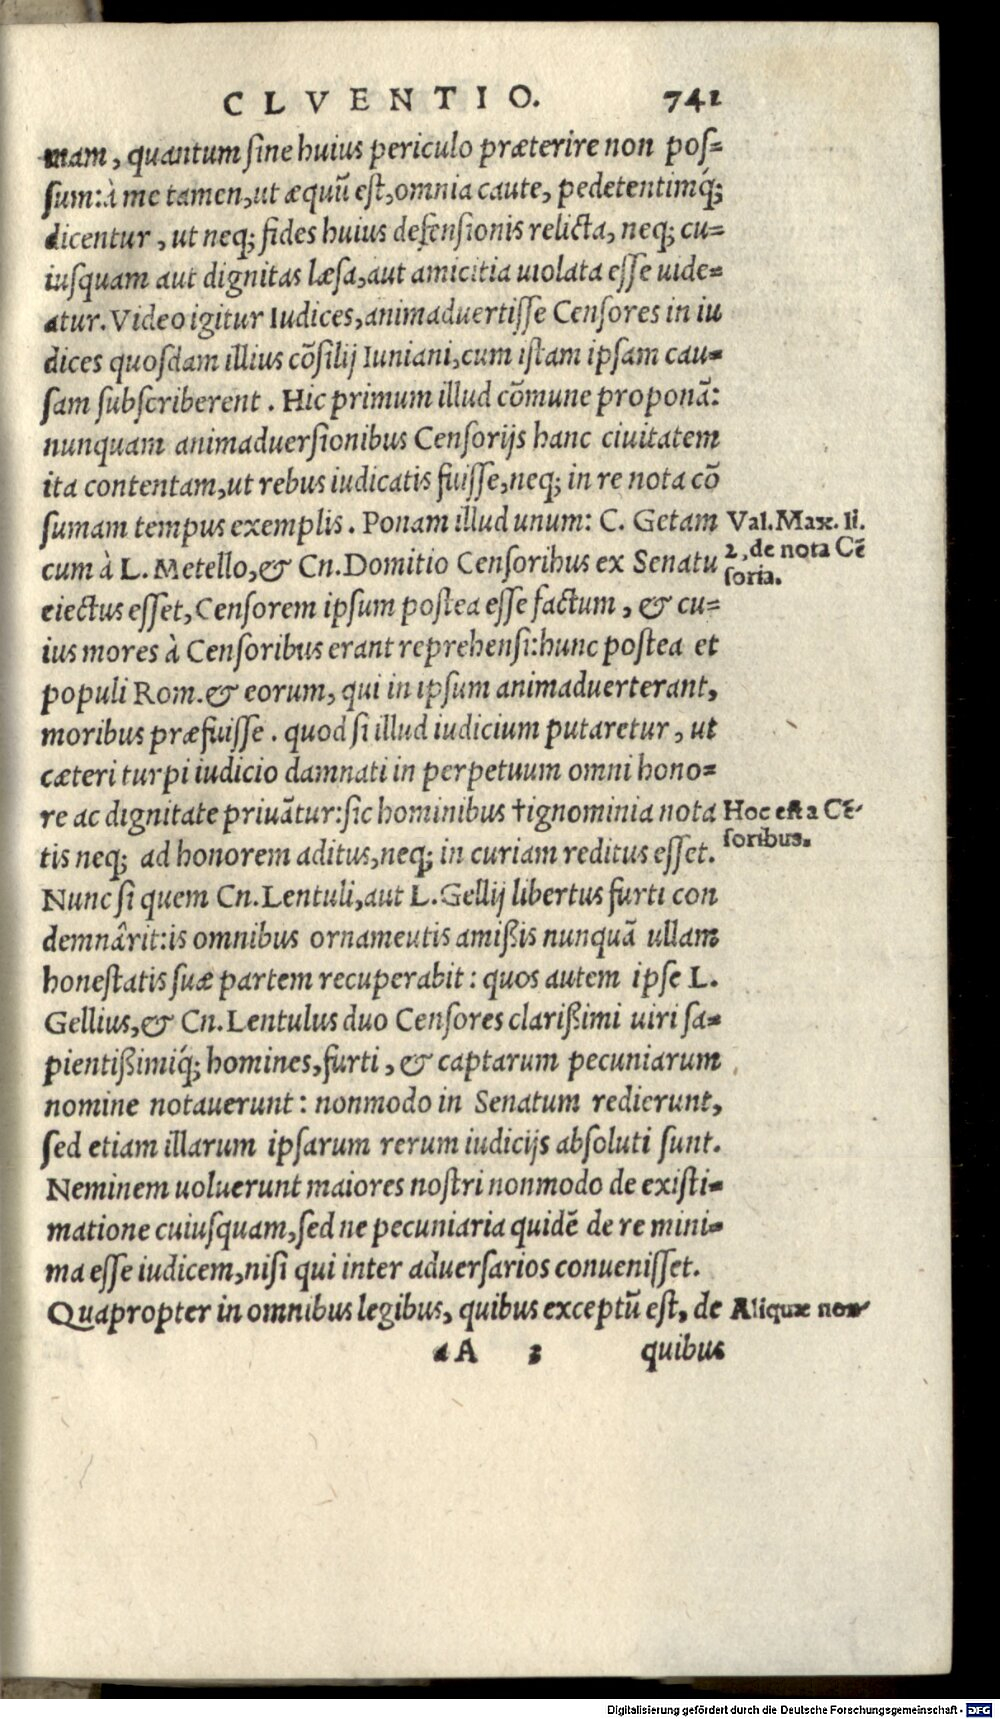 CLVENTIO. 741
mam, quantum sine huius periculo præterire non pos-
sum: à me tamen, ut æquũ est, omnia caute, pedetentimq́;
dicentur, ut neq; fides huius defensionis relicta, neq; cu-
iusquam aut dignitas læsa, aut amicitia uiolata esse uide-
atur. Video igitur Iudices, animaduertisse Censores in iu
dices quosdam illius cõsilij Iuniani, cum istam ipsam cau-
sam subscriberent. Hic primum illud cõmune proponã:
nunquam animaduersionibus Censorijs hanc ciuitatem
ita contentam, ut rebus iudicatis fuisse, neq; in re nota cõ
sumam tempus exemplis. Ponam illud unum: C. Getam
Val. Max. li.
2, de nota Cẽ
soria.
cum à L. Metello, & Cn. Domitio Censoribus ex Senatu
eiectus esset, Censorem ipsum postea esse factum, & cu-
ius mores à Censoribus erant reprehensi: hunc postea et
populi Rom. & eorum, qui in ipsum animaduerterant,
moribus præfuisse. quod si illud iudicium putaretur, ut
cæteri turpi iudicio damnati in perpetuum omni hono-
re ac dignitate priuãtur: sic hominibus †ignominia nota
Hoc est a Cẽ-
soribus.
tis neq; ad honorem aditus, neq; in curiam reditus esset.
Nunc si quem Cn. Lentuli, aut L. Gellij libertus furti con
demnârit: is omnibus ornameutis amißis nunquã ullam
honestatis suæ partem recuperabit: quos autem ipse L.
Gellius, & Cn. Lentulus duo Censores clarißimi uiri sa-
pientißimiq́; homines, furti, & captarum pecuniarum
nomine notauerunt: nonmodo in Senatum redierunt,
sed etiam illarum ipsarum rerum iudicijs absoluti sunt.
Neminem uoluerunt maiores nostri nonmodo de existi-
matione cuiusquam, sed ne pecuniaria quidẽ de re mini-
ma esse iudicem, nisi qui inter aduersarios conuenisset.
Quapropter in omnibus legibus, quibus exceptũ est, de
Aliquæ non
aA 3 quibus
Digitalisierung gefördert durch die Deutsche Forschungsgemeinschaft - DFG